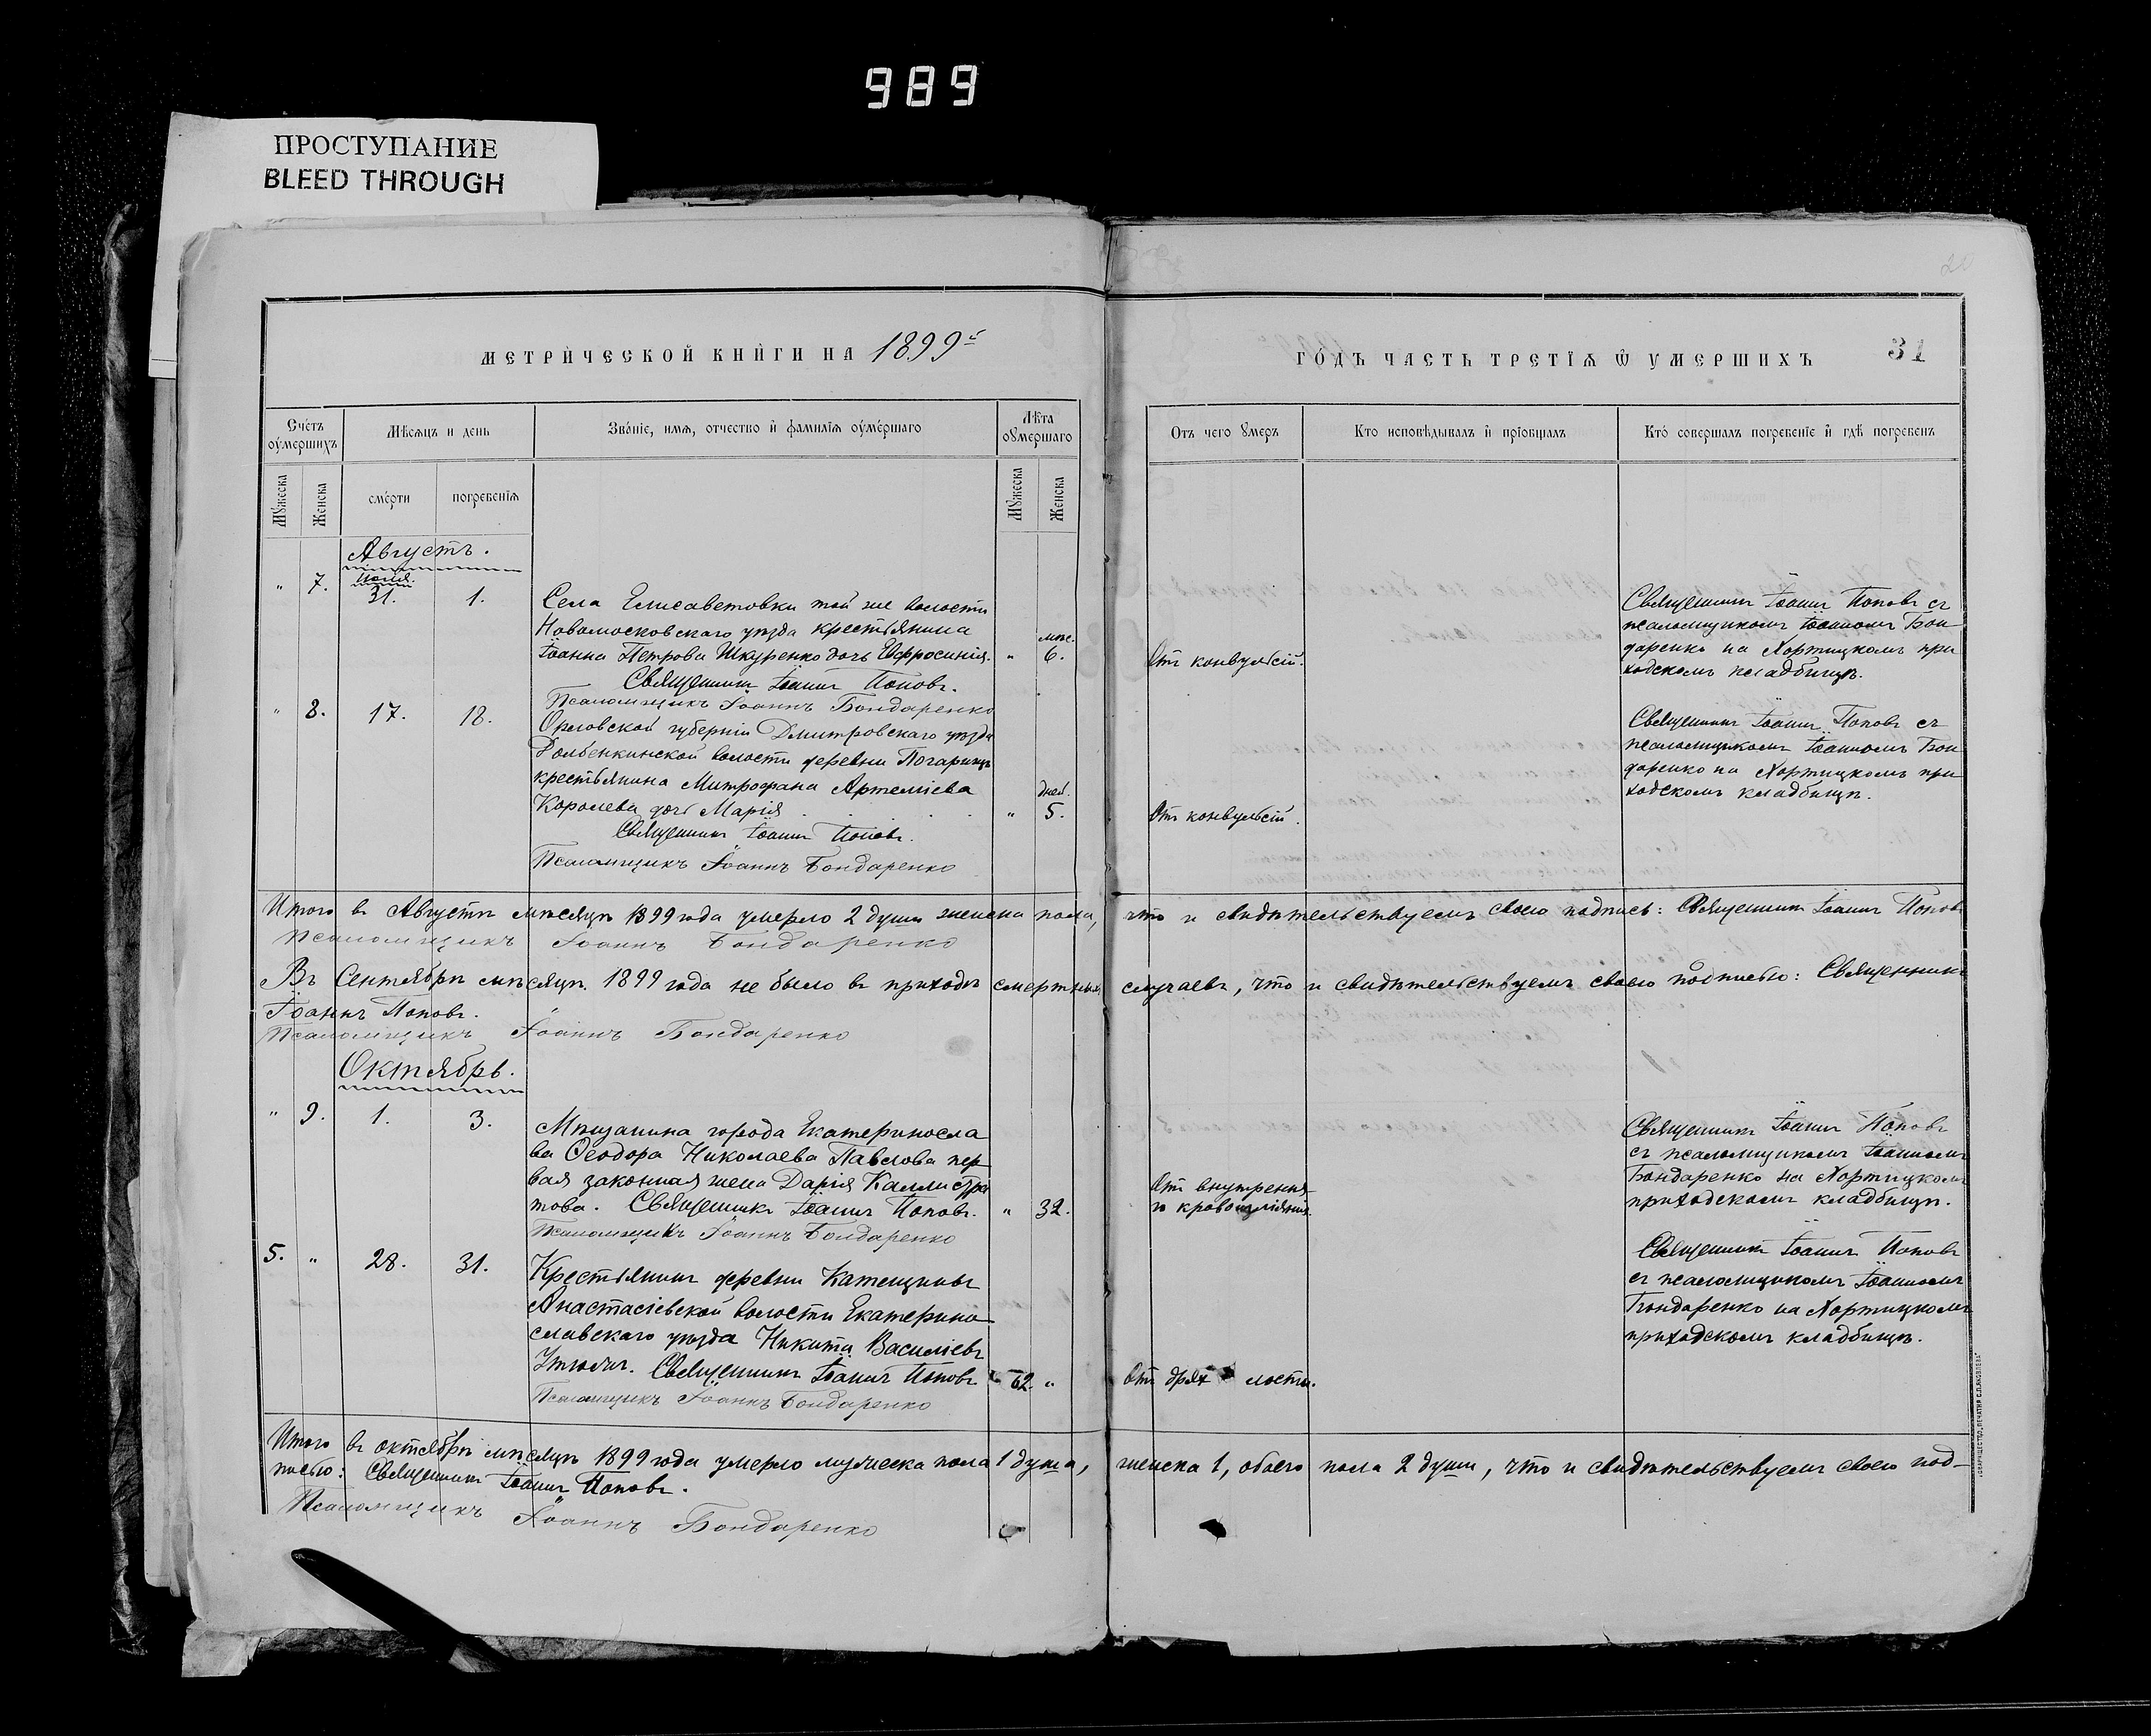 989
ПРОСТУПАНИЕ
BLEED THROUGH
МЕТРИЧЕСКОЙ КНИГИ НА 1899й
ГОДЪ ЧАСТЬ ТРЕТІЯ Ѿ УМЕРШИХЪ
31
Счетъ оумершихъ
Мѣсяцъ и день
Званіе, имя, отчество и фамилія оумершаго
Лѣта оумершаго
Отъ чего умеръ
Кто исповѣдывалъ и пріобщалъ
Кто совершалъ погребеніе и гдѣ погребенъ
Мужеска
Женска
смерти
погребенія
Мужеска
Женска
Августъ.
" 7. Іюля 31. 1.
Села Елисаветовки той же волости
Новомосковскаго уѣзда крестьянина
Іоанна Петрова Шкуренко дочь Евфросинія.
" мѣс. 6.
Отъ конвульсій.
Священникъ Іоаннъ Поповъ съ
псаломщикомъ Іоанномъ Бон
даренко на Хортицкомъ при
ходскомъ кладбищѣ.
Священникъ Іоаннъ Поповъ.
Псаломщикъ Іоаннъ Бондаренко
" 8. 17. 18.
Орловской губерніи Дмитровскаго уѣзда
волости деревни
крестьянина Митрофана Артеміева
Королева дочь Марія
" дней. 5.
Отъ конвульсій.
Священникъ Іоаннъ Поповъ съ
псаломщикомъ Іоанномъ Бон
даренко на Хортицкомъ при
ходскомъ кладбищѣ.
Священникъ Іоаннъ Поповъ.
Псаломщикъ Іоаннъ Бондаренко
Итого въ Августѣ мѣсяцѣ 1899 года умерло 2 души женска пола, что и свидѣтельствуемъ своею подписью: Священникъ Іоаннъ Поповъ
Псаломщикъ Іоаннъ Бондаренко
Въ Сентябрѣ мѣсяцѣ 1899 года не было въ приходѣ смертныхъ случаевъ, что и свидѣтельствуемъ своею подписью: Священникъ
Іоаннъ Поповъ.
Псаломщикъ Іоаннъ Бондаренко
Октябрь.
" 9. 1. 3.
Мѣщанина города Екатериносла
ва Ѳеодора Николаева Павлова пер
вая законная жена Дарія Каллистра
това. Священникъ Іоаннъ Поповъ.
" 32.
Отъ внутрення
го кровоизліянія.
Священникъ Іоаннъ Поповъ
съ псаломщикомъ Іоанномъ
Бондаренко на Хортицкомъ
приходскомъ кладбищѣ.
Псаломщикъ Іоаннъ Бондаренко
5. " 28. 31.
Крестьянинъ деревни
Анастасіевской волости Екатерино
славскаго уѣзда Никита Василіевъ
Священникъ Іоаннъ Поповъ
62. "
Отъ дряхлости.
Священникъ Іоаннъ Поповъ
съ псаломщикомъ Іоанномъ
Бондаренко на Хортицкомъ
приходскомъ кладбищѣ.
Псаломщикъ Іоаннъ Бондаренко
Итого въ октябрѣ мѣсяцѣ 1899 года умерло мужеска пола 1 душа, женска 1, обоего пола 2 души, что и свидѣтельствуемъ своею под-
писью: Священникъ Іоаннъ Поповъ.
Псаломщикъ Іоаннъ Бондаренко